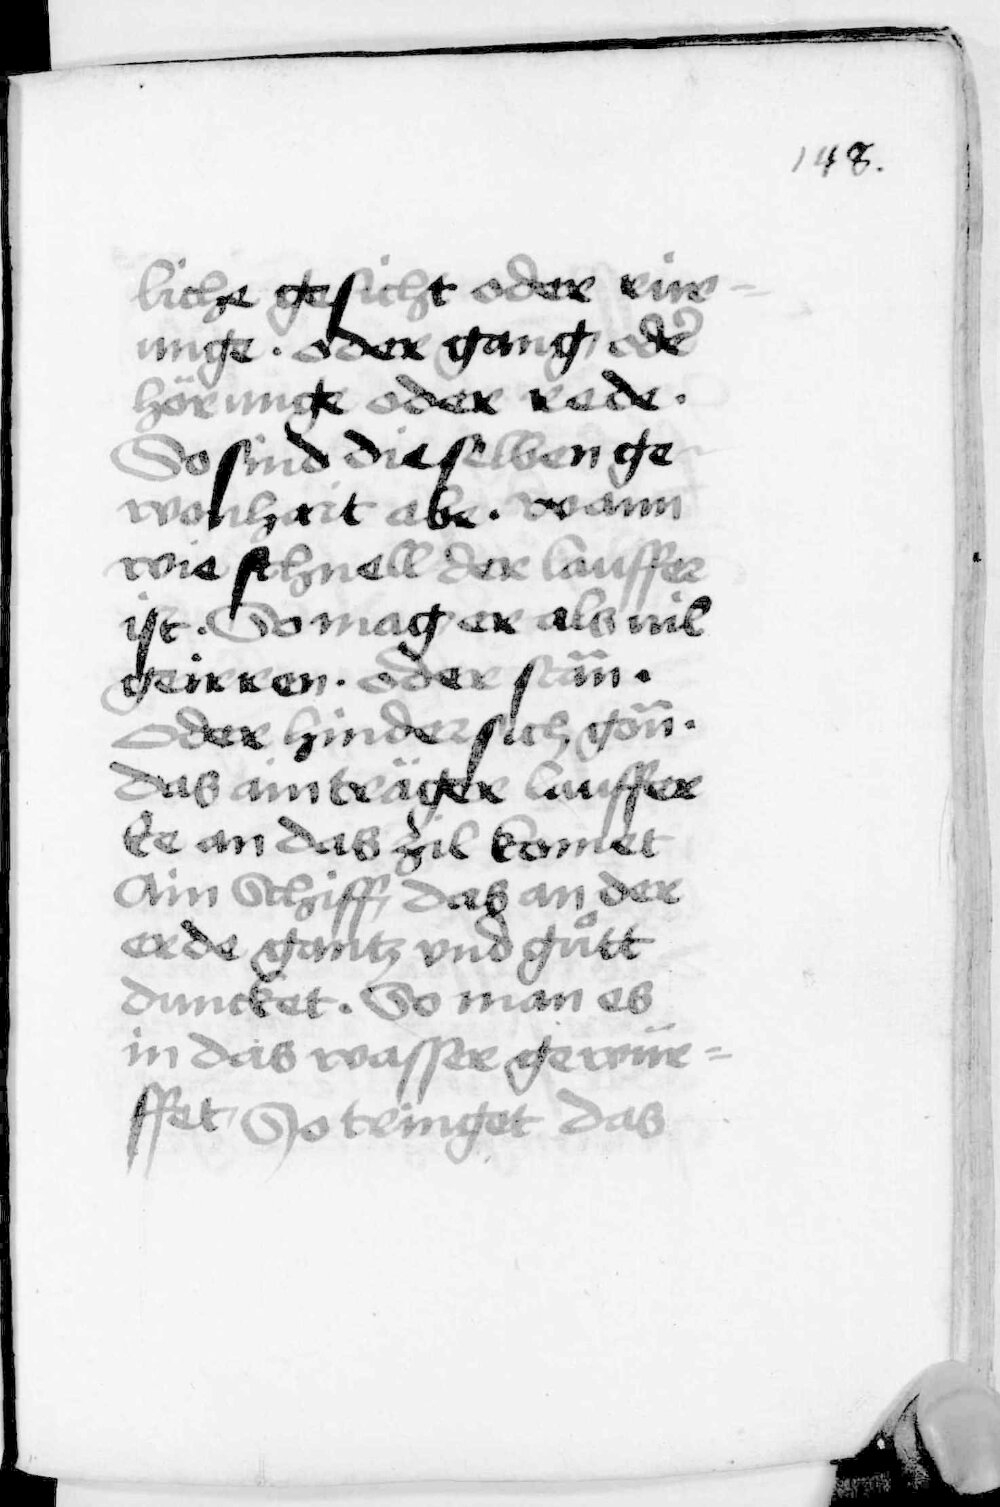 148.
liche gesicht oder rür=
unge. oder gang, oder
hörunge oder rede.
So sind die selben ge
wonhait abe. wann
wie schnell der lauffer
ist. So mag er als vil
geirren. oder stän.
oder hindersich gön.
das ain träger lauffer
ee an das zil komet
Ain Schiff, das an der
erde gantz vnd gůtt
duncket. So man es
in das wasser gewür=
ffet, So tringet das